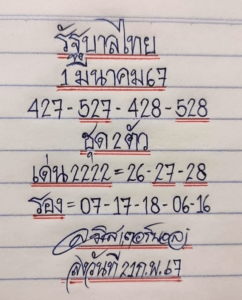 รัฐบาลไทย
1 มีนาคม 67
427 - 527 - 428 - 528
ชุด 2 ตัว
เด่น 2222 = 26 - 27 - 28
รอง = 07 - 17 - 18 - 06 - 16
ส วันที่ 21 ก.พ. 67